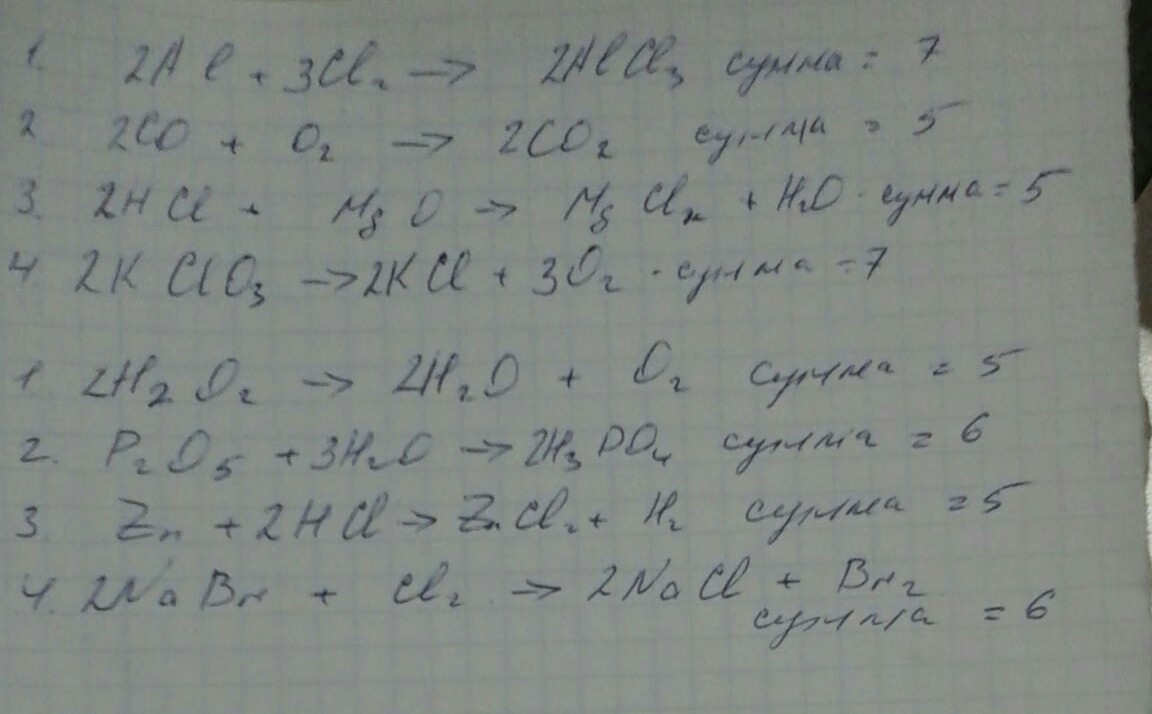 1. 2Al + 3Cl₂ → 2AlCl₃ сумма = 7
2 2CO + O₂ → 2CO₂ сумма = 5
3. 2HCl + MgO → MgCl₂ + H₂O · сумма = 5
4 2KClO₃ → 2KCl + 3O₂ · сумма = 7
1. 2H₂O₂ → 2H₂O + O₂ сумма = 5
2. P₂O₅ + 3H₂O → 2H₃PO₄ сумма = 6
3. Zn + 2HCl → ZnCl₂ + H₂ сумма = 5
4. 2NaBr + Cl₂ → 2NaCl + Br₂
сумма = 6